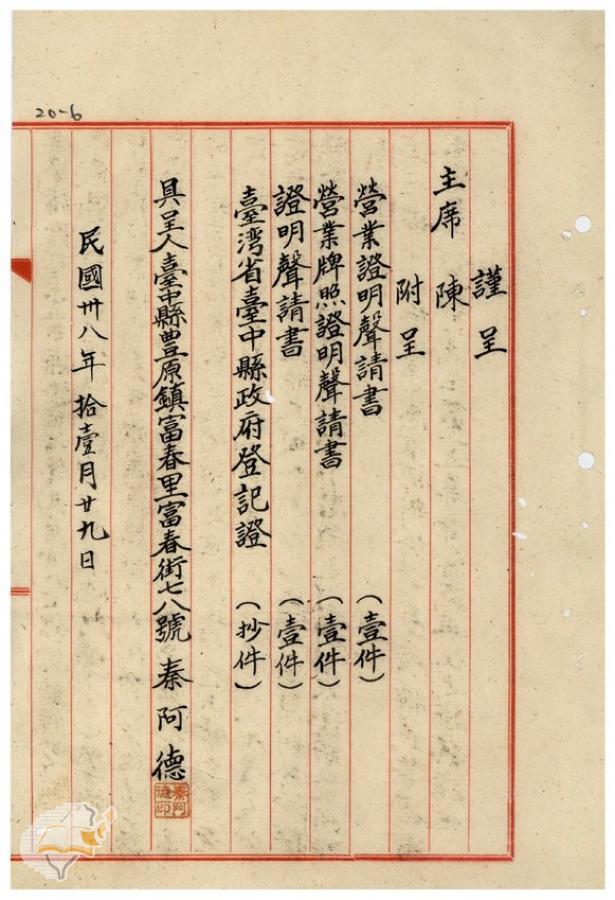 20-6
謹呈
主席 陳
附呈
營業證明聲請書 (壹件)
營業牌照證明聲請書 (壹件)
證明聲請書 (壹件)
臺湾省臺中縣政府登記證 (抄件)
具呈人臺中縣豊原鎮富春里富春街七八號 秦阿德
民國卅八年拾壹月廿九日